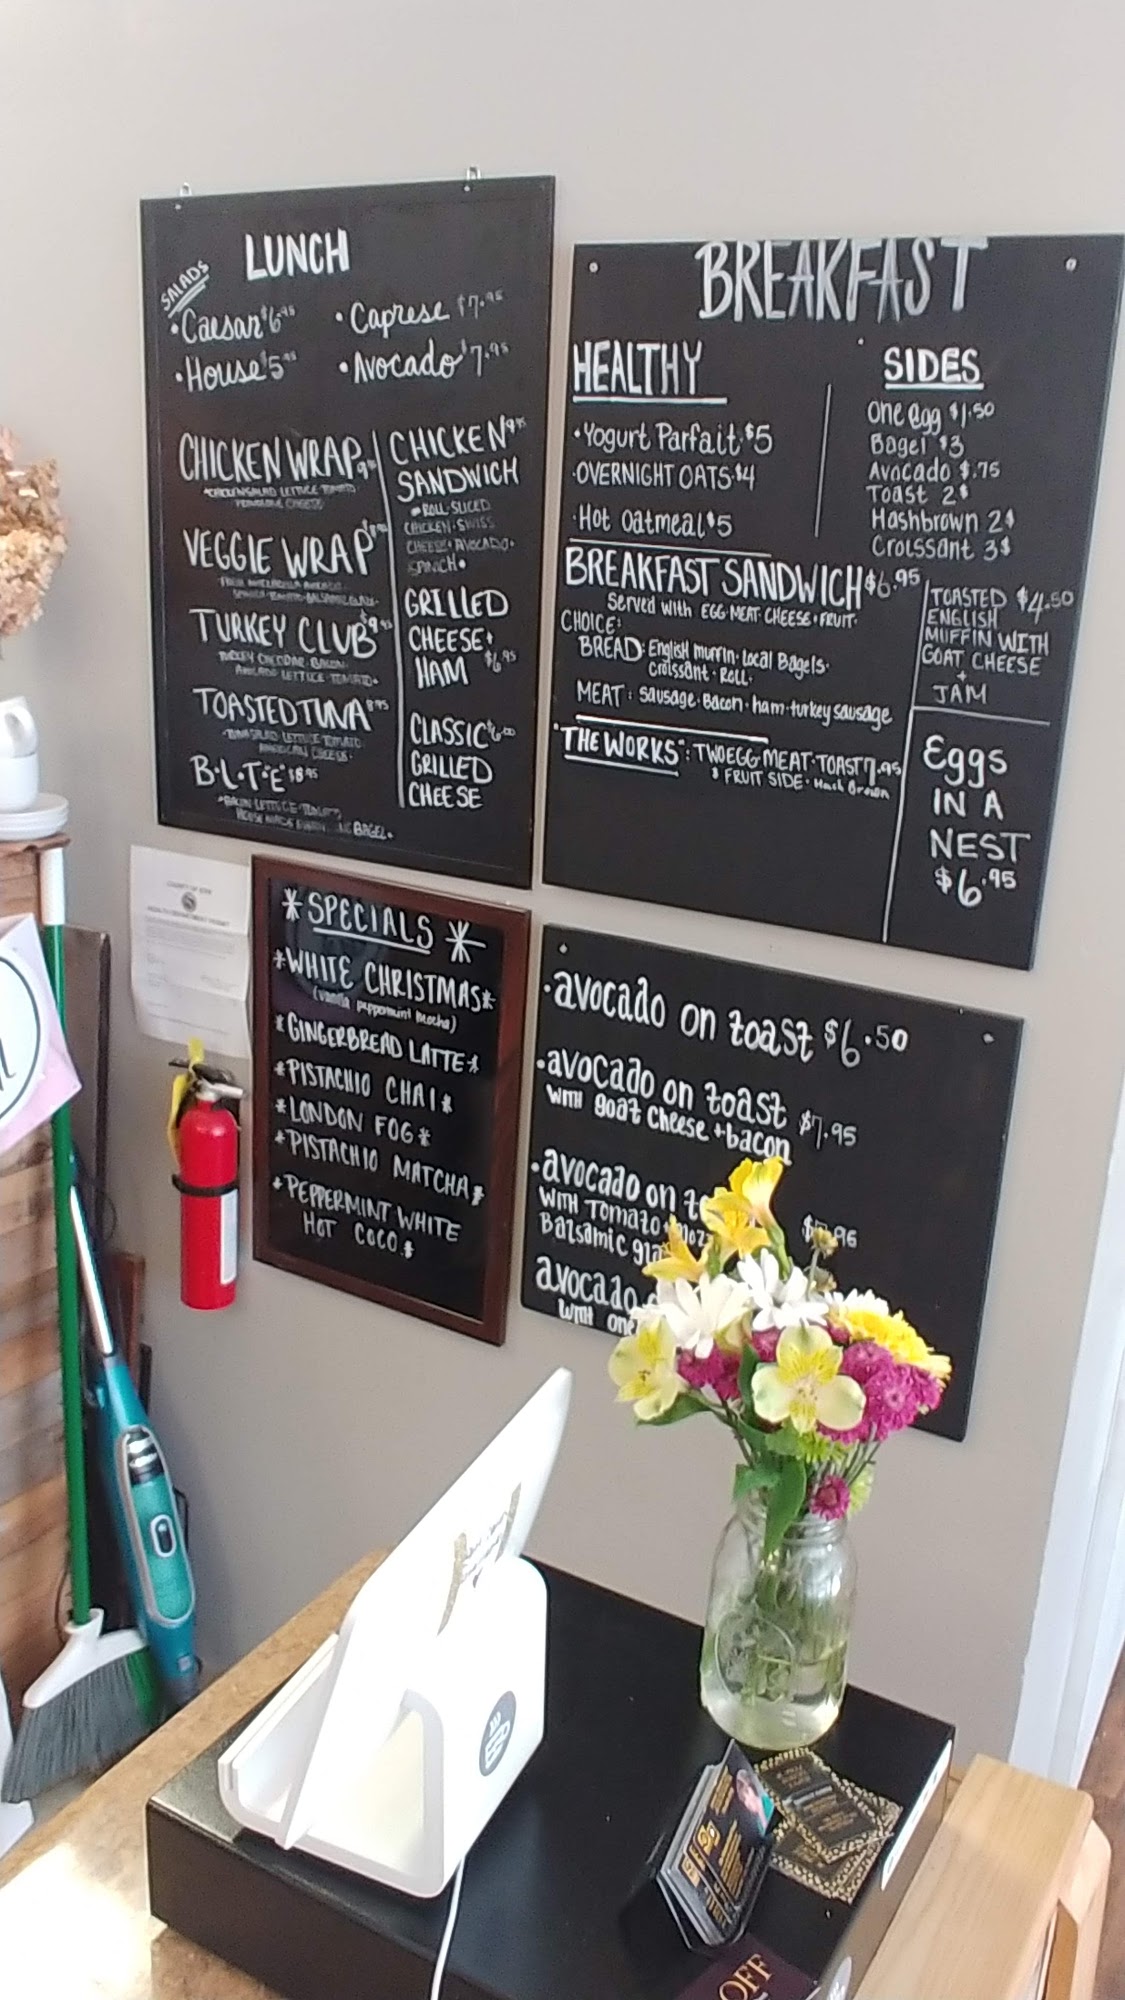 LUNCH
SALADS
•Caesar $6.95
•Caprese $7.95
•House $5.95
•Avocado $7.95
CHICKEN WRAP 9.95
CHICKEN SALAD LETTUCE TOMATO
PROVOLONE CHEESE
VEGGIE WRAP
TURKEY CLUB $9.95
TURKEY CHEDDAR BACON
AVOCADO LETTUCE TOMATO
TOASTED TUNA 8.95
TUNA SALAD LETTUCE TOMATO
AMERICAN CHEESE
B•L•T•"E" $8.95
BACON LETTUCE TOMATO
BAGEL
CHICKEN 9.95
SANDWICH
ROLL SLICED
CHICKEN SWISS
CHEESE AVOCADO
SPINICH
GRILLED
CHEESE +
HAM $6.95
CLASSIC $6.00
GRILLED
CHEESE
BREAKFAST
HEALTHY
•Yogurt Parfait $5
•OVERNIGHT OATS $4
•Hot Oatmeal $5
SIDES
One egg $1.50
Bagel $3
Avocado $.75
Toast 2$
Hashbrown 2$
Croissant 3$
BREAKFAST SANDWICH $6.95
Served with EGG MEAT CHEESE + FRUIT
CHOICE:
BREAD: English muffin • Local Bagels •
Croissant • Roll •
MEAT: Sausage • Bacon • ham • turkey sausage
"THE WORKS": TWO EGG • MEAT • TOAST 7.95
& FRUIT SIDE • Hash Brown
TOASTED $4.50
ENGLISH
MUFFIN WITH
GOAT CHEESE
+
JAM
Eggs
IN A
NEST
$6.95
*SPECIALS*
*WHITE CHRISTMAS*
(vanilla peppermint mocha)
*GINGERBREAD LATTE*
*PISTACHIO CHAI*
*LONDON FOG*
*PISTACHIO MATCHA*
*PEPPERMINT WHITE
HOT COCO*
•avocado on toast $6.50
•avocado on toast $7.95
WITH goat cheese + bacon
•avocado on
WITH Tomato
Balsamic
avocado
WITH
COUNTY OF
OFF